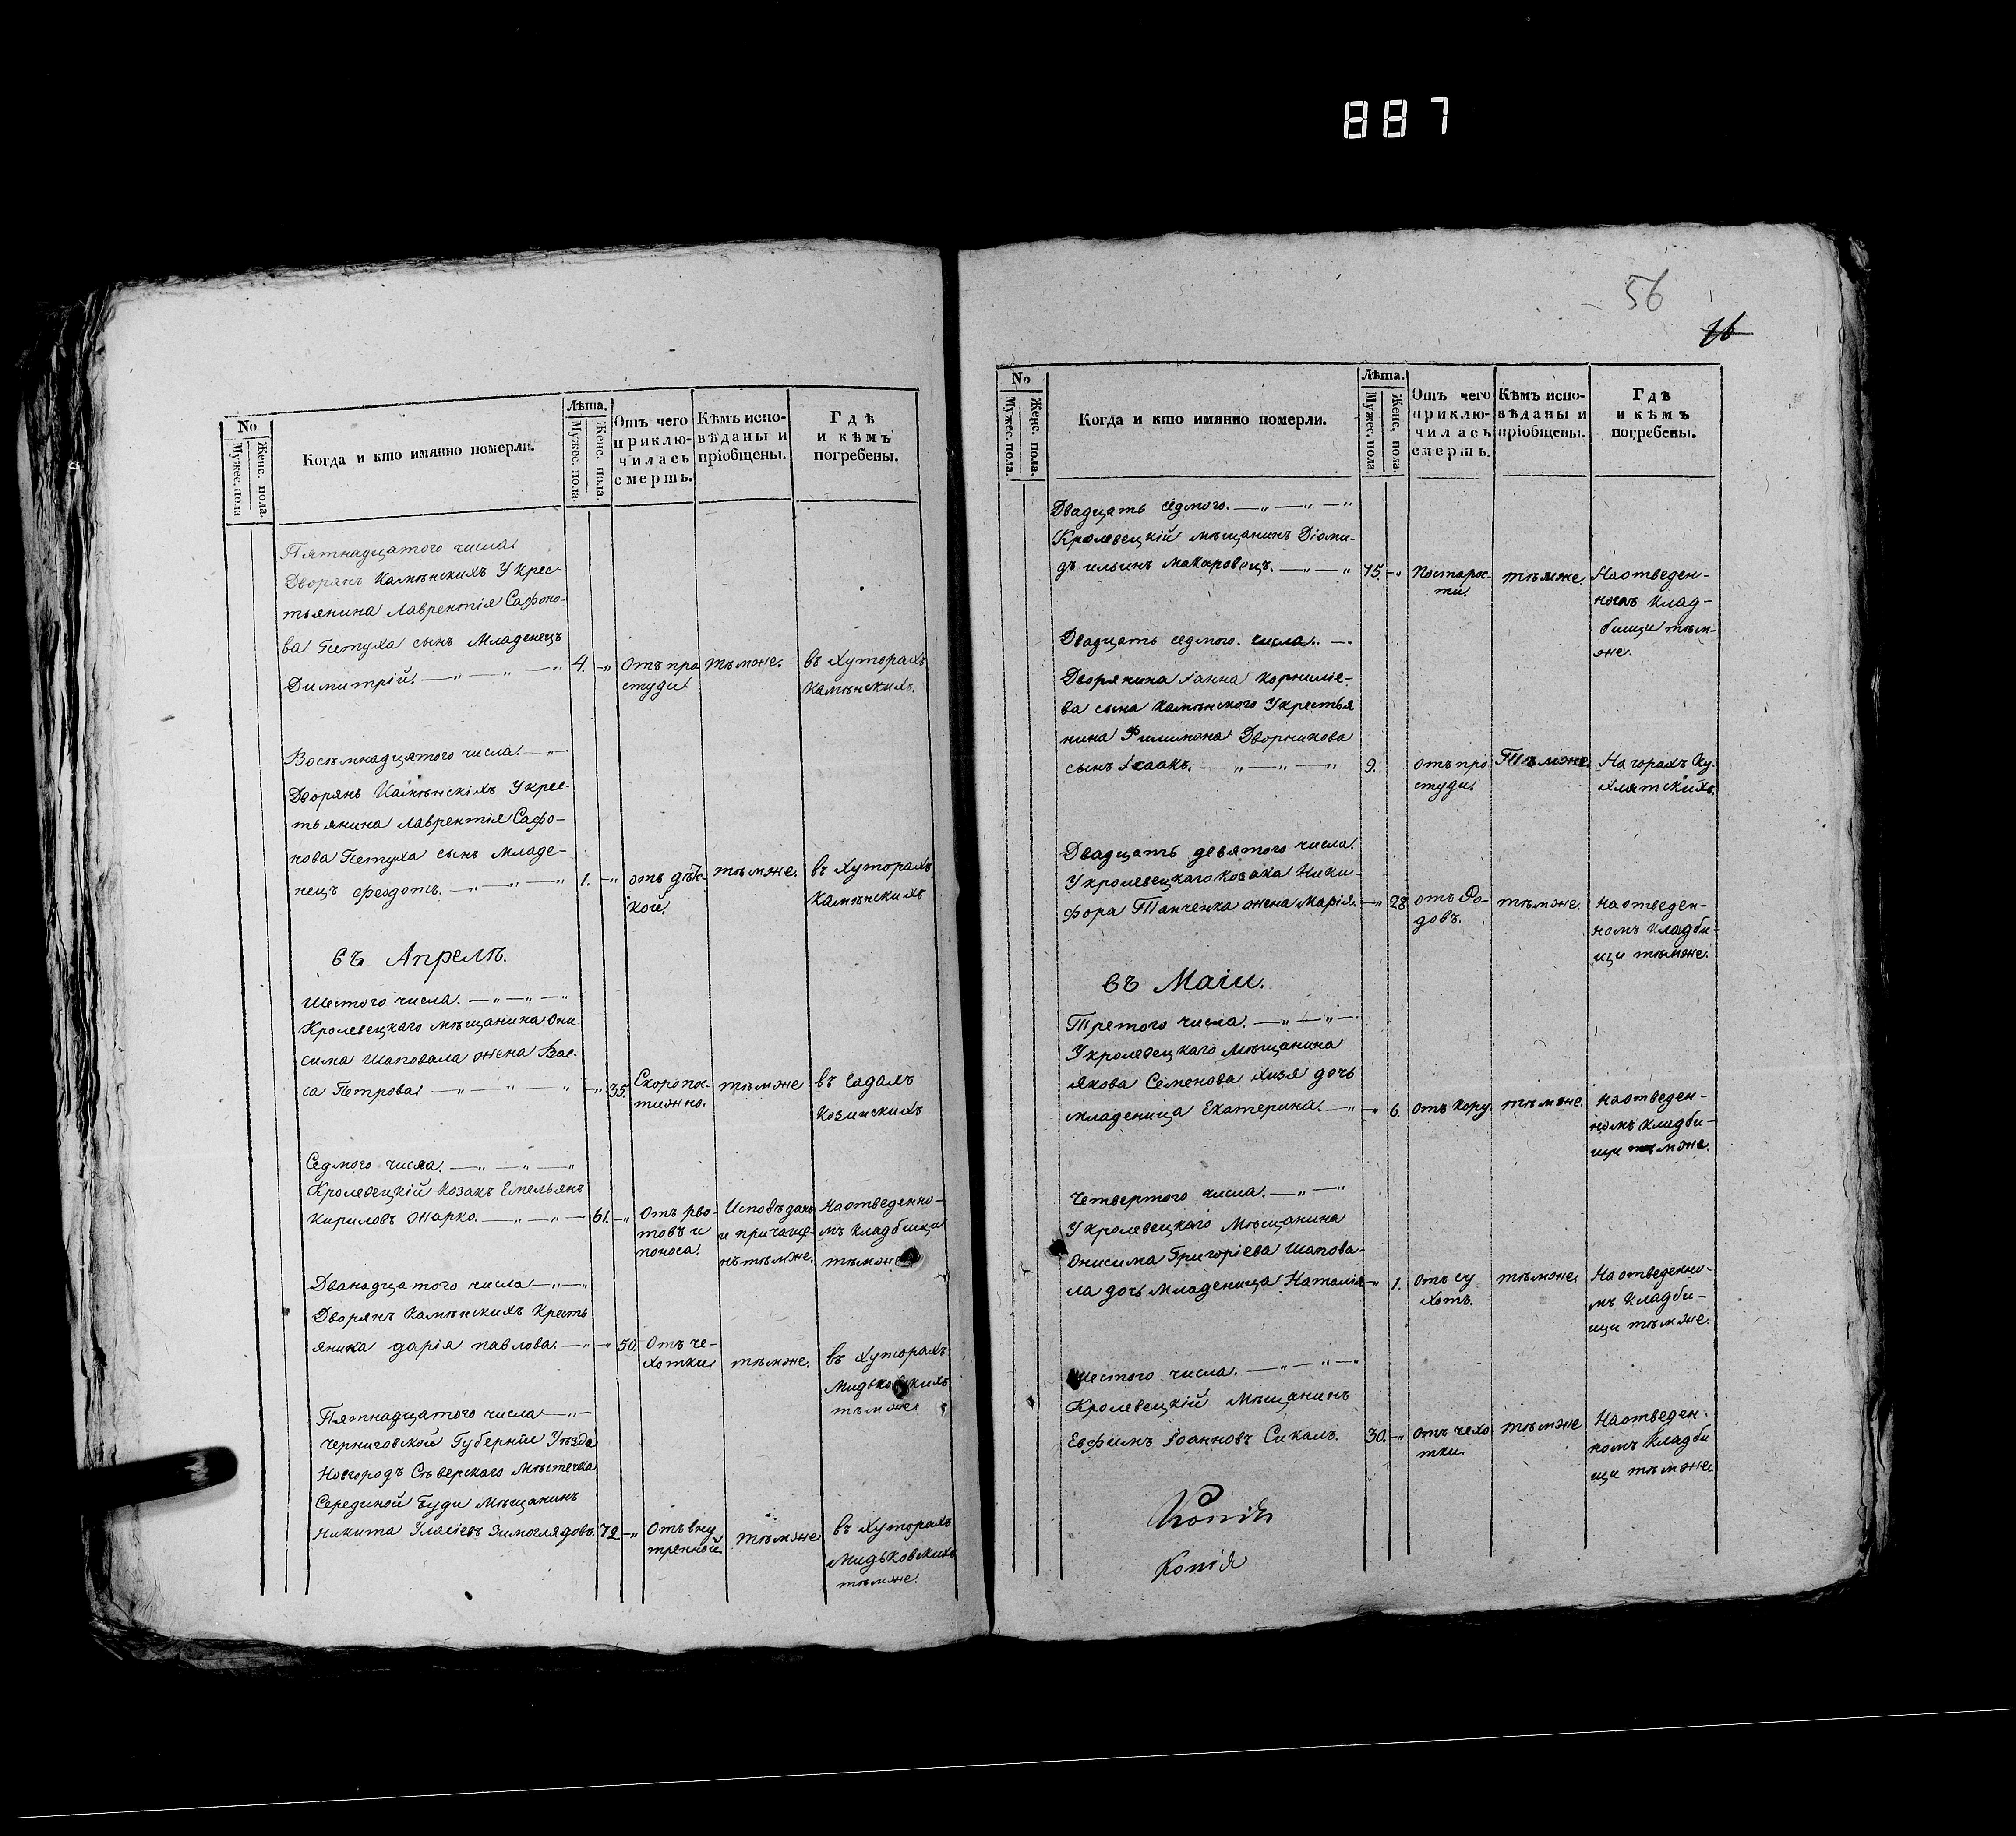 887
56
16
No
Мужес. пола
Женс. пола.
Когда и кто имянно померли.
Лѣта.
Мужес. пола
Женс. пола.
Отъ чего
приклю-
чилась
смерть.
Кѣмъ испо-
вѣданы и
пріобщены.
Гдѣ
и кѣмъ
погребены.
Пятнадцатого числа.
Дворянъ Камѣнскихъ У крес-
тьянина Лаврентія Сафоно-
ва Петуха сынъ Младенецъ
Димитрій. — „ — „ — „ 4. — „ Отъ про тѣмже. въ Хуторахъ
студи. Камѣнскихъ.
Восѣмнадцятого числа. — „ —
Дворянъ Камѣнскіхъ У крес-
тьянина Лаврентія Сафо-
нова Петуха сынъ Младе-
нецъ Феодотъ. — „ — „ — „ 1. — „ отъ дѣт- тѣмже. въ Хуторахъ
кой. Камѣнскихъ
въ Апрелѣ.
Шестого числа. — „ — „ — „
Кролевецкаго мѣщанина Они
сима Шаповала жена Вас-
са Петрова — „ — „ — „ — „ 35. Скоропос- тѣмже въ Садахъ
тижно. Козинскихъ
Седмого числа. — „ — „ — „
Кролевецкій Козакъ Емельянъ
Кириловъ Жарко. — „ — „ — 61. — „ Отъ рво- Исповѣданъ Наотведенно-
товъ и и причаще- мъ кладбищи
поноса. нъ тѣмже. тѣмже
Дванадцатого числа — „ — „
Дворянъ Камѣнскихъ Кресть
янка дарія павлова. — „ — „ 50. Отъ че-
хотки тѣмже. въ Хуторахъ
Мидьковскихъ
тѣмже
Пятнадцатого числа — „ —
Черниговской Губерніи Уѣзда
Новгородъ Сѣверскаго Мѣстечка
Серединой Буди Мѣщанинъ
Никита Иліевъ Зимоглядовъ. 72 — „ Отъ вну тѣмже въ Хуторахъ
тренной Мидьковскихъ
тѣмже.
No
Мужес. пола.
Женс. пола.
Когда и кто имянно померли.
Лѣта.
Мужес. пола
Женс. пола.
Отъ чего
приклю-
чилась
смерть.
Кѣмъ испо-
вѣданы и
пріобщены.
Гдѣ
и кѣмъ
погребены.
Двадцать седмого. — „ — „ — „
Кролевецкій мѣщанинъ Діоми-
дъ ильинъ Макаровецъ. — „ — „ 75. — „ Постарос- тѣмже Наотведен-
ти. номъ Клад-
бищи тѣм-
же.
Двадцать седмого числа. —
Дворянина Іанна Корниліе-
ва сына Камѣнского У крестья
нина Филимона Дворникова
сынъ Ісаакъ. — „ — „ — „ 9. отъ про Тѣмже. На горахъ Ку-
студи. хлятскихъ.
Двадцать девятого числа.
У кролевецкаго козака Ники-
фора Танченка жена Марія. — „ 28 отъ Ро- тѣмже. Наотведен-
довъ. номъ Кладби-
щи тѣмже.
въ Маіи.
Третого числа. — „ — „ —
У кролевецкаго Мѣщанина
Якова Семенова Хизя дочь
младеница Екатерина. — „ — „ 6. отъ Кору. тѣмже. Наотведен-
номъ Кладби-
щи тѣмже.
Четвертого числа. — „ — „
У кролевецкаго Мѣщанина
Онисима Григоріева Шапова-
ла дочь Младеница Наталія — „ 1. Отъ су тѣмже. На отведенно-
хотъ. мъ Кладби-
щи тѣмже.
Шестого числа. — „ — „ — „
Кролевецкій Мѣщанинъ
Евфимъ Іоанновъ Сикалъ. 30. — „ Отъ чехо тѣмже Наотведен-
тки номъ Кладби
щи тѣмже.
Копія
Копія